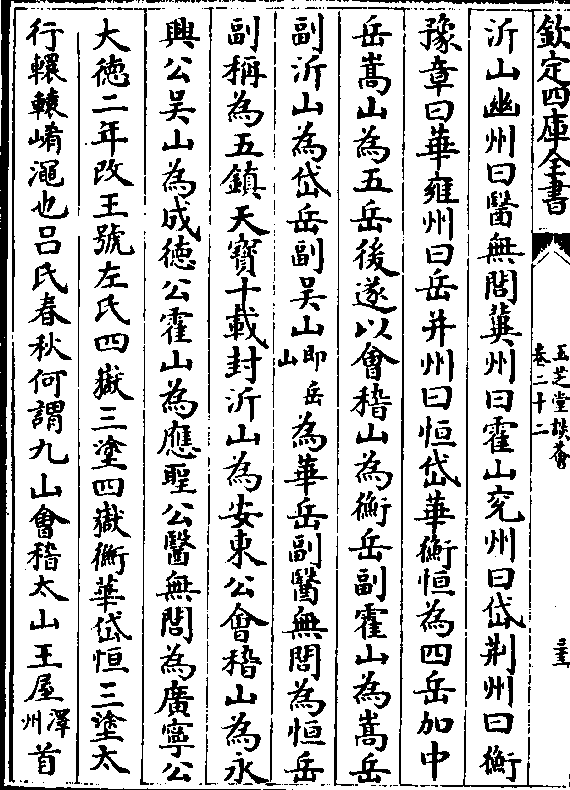 欽定四庫全書
玉芝堂談薈
卷二十二
沂山幽州曰醫無閭冀州曰霍山兖州曰岱荆州曰衡
豫章曰華雍州曰岳并州曰恒岱華衡恒為四岳加中
岳嵩山為五岳後遂以會稽山為衡岳副霍山為嵩岳
副沂山為岱岳副吴山即岳山為華岳副醫無閭為恒岳
副稱為五鎮天寶十載封沂山為安東公會稽山為永
興公吴山為成徳公霍山為應聖公醫無閭為廣寧公
大徳二年改王號左氏四嶽三塗四嶽衡華岱恒三塗太
行轘轅崤澠也吕氏春秋何謂九山會稽太山王屋澤州首